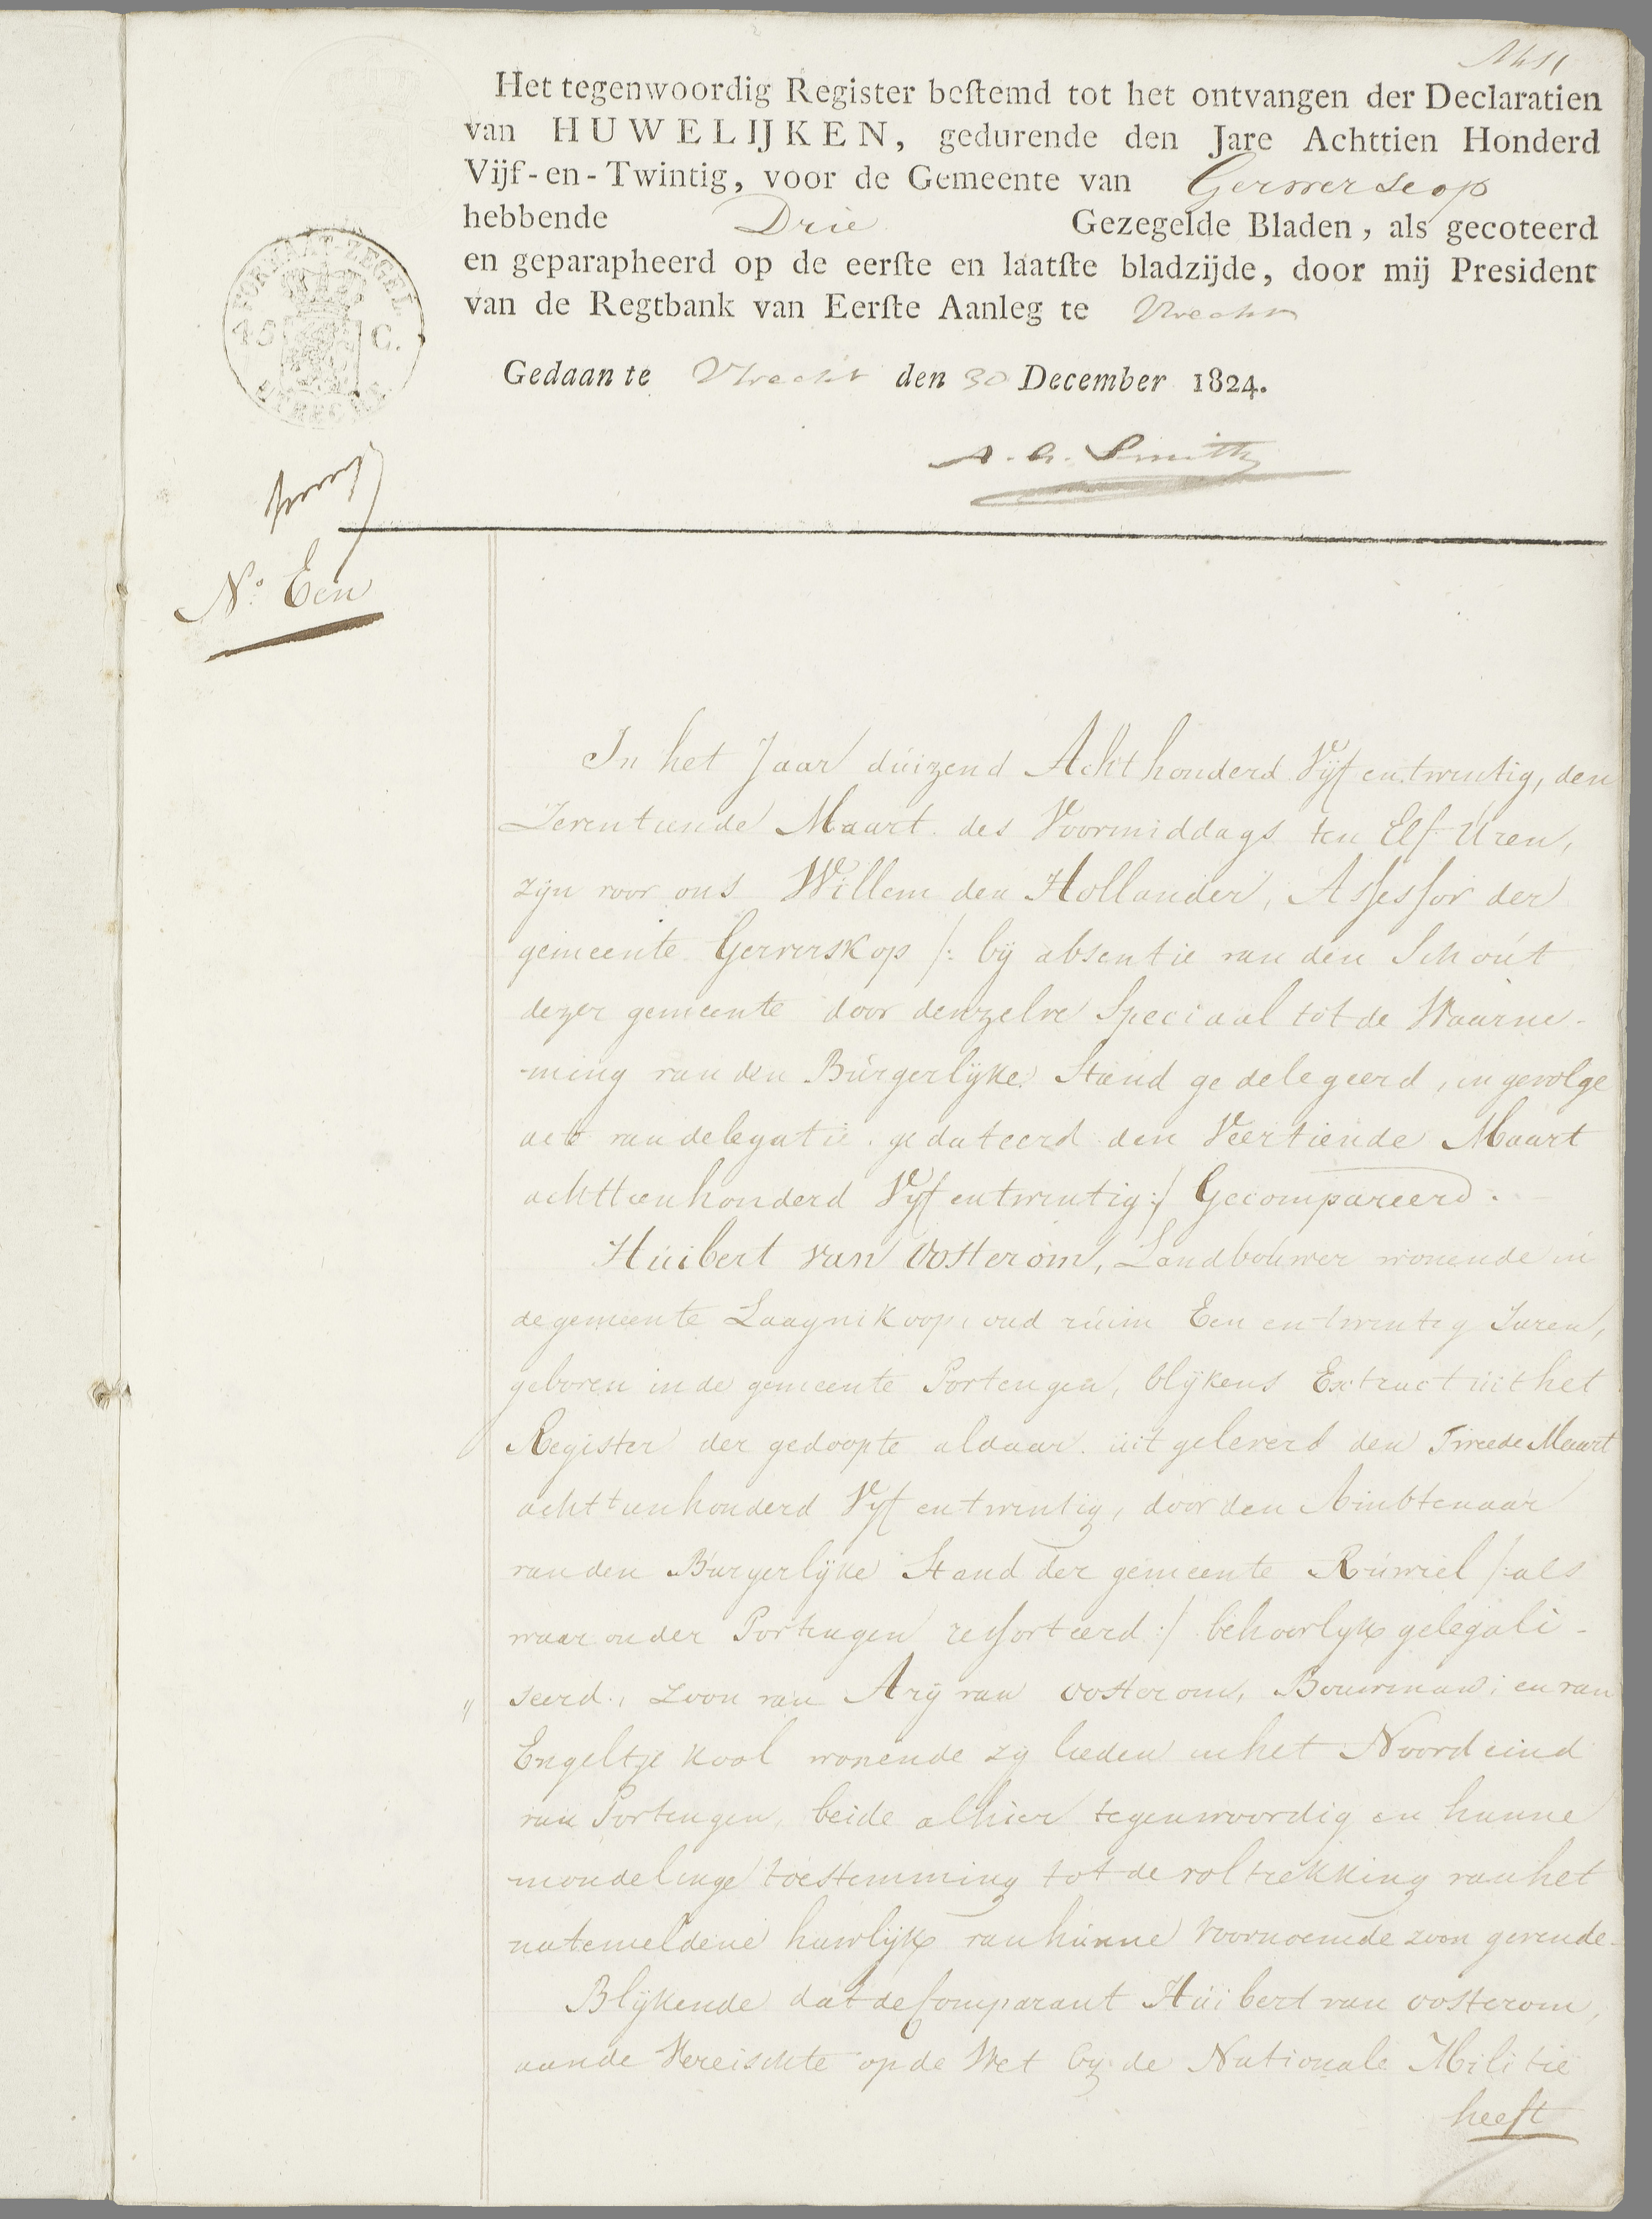 Het tegenwoordig Register beſtemd tot het ontvangen der Declaratien
van HUWELIJKEN, gedurende den Jare Achttien Honderd
Vijf-en-Twintig, voor de Gemeente van Gerverscop
hebbende Drie Gezegelde Bladen, als gecoteerd
en geparapheerd op de eerſte en laatſte bladzijde, door mij President
van de Regtbank van Eerſte Aanleg te Utrecht
Gedaan te Utrecht den 30 December 1824.
FORMAAT ZEGEL
45 C.
UTRECHT
Smith
No. Een
In het Jaar duizend Acht honderd Vyf en twintig, den
Zeventiende Maart des Voormiddags ten Elf Uren,
zyn voor ons Willem den Hollander, Assessor der
gemeente Gerverskop /: by absentie van den Schout
dezer gemeente door denzelve Speciaal tot de Waarne-
-ming van den Burgerlyke Stand gedelegeerd, in gevolge
acte van delegatie gedateerd den Veertiende Maart
achttienhonderd Vyf en twintig :/ Gecompareerd.
Huibert van Oosterom, Landbouwer wonende in
de gemeente Laagnikoop, oud ruim Een en twintig Jaren,
geboren in de gemeente Portengen, blykens Extract uit het
Register der gedoopte aldaar uitgeleverd den Tweede Maart
achttienhonderd Vyf en twintig, door den Ambtenaar
van den Burgerlyke Stand der gemeente Ruwiel /: als
waar onder Portengen ressorteerd :/ behoorlyk gelegali-
seerd, zoon van Ary van Oosterom, Bouwman, en van
Engeltje Kool wonende zy lieden in het Noordeind
van Portengen, beide alhier tegenwoordig en hunne
mondelinge toestemming tot de voltrekking van het
natemeldene huwlyk van hunne voornoemde zoon gevende.
Blykende dat de Comparant Huibert van Oosterom,
aan de Vereischte op de Wet by de Nationale Militie
heeft